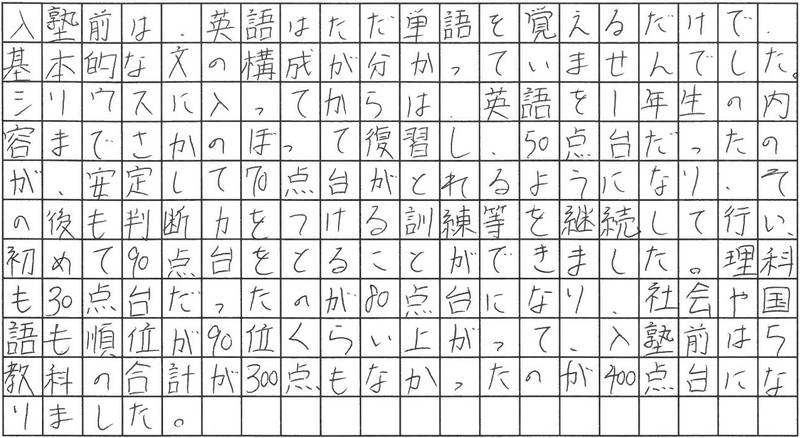 入塾前は、英語はただ単語を覚えるだけで、
基本的な文の構成が分かっていませんでした。
シリウスに入ってからは、英語を1年生の内
容までさかのぼって復習し、50点台だったの
が、安定して70点台がとれるようになり、そ
の後も判断力をつける訓練等を継続して行い、
初めて90点台をとることができました。理科
も30点台だったのが80点台になり、社会や国
語も順位が90位くらい上がって、入塾前は5
教科の合計が300点もなかったのが400点台にな
りました。